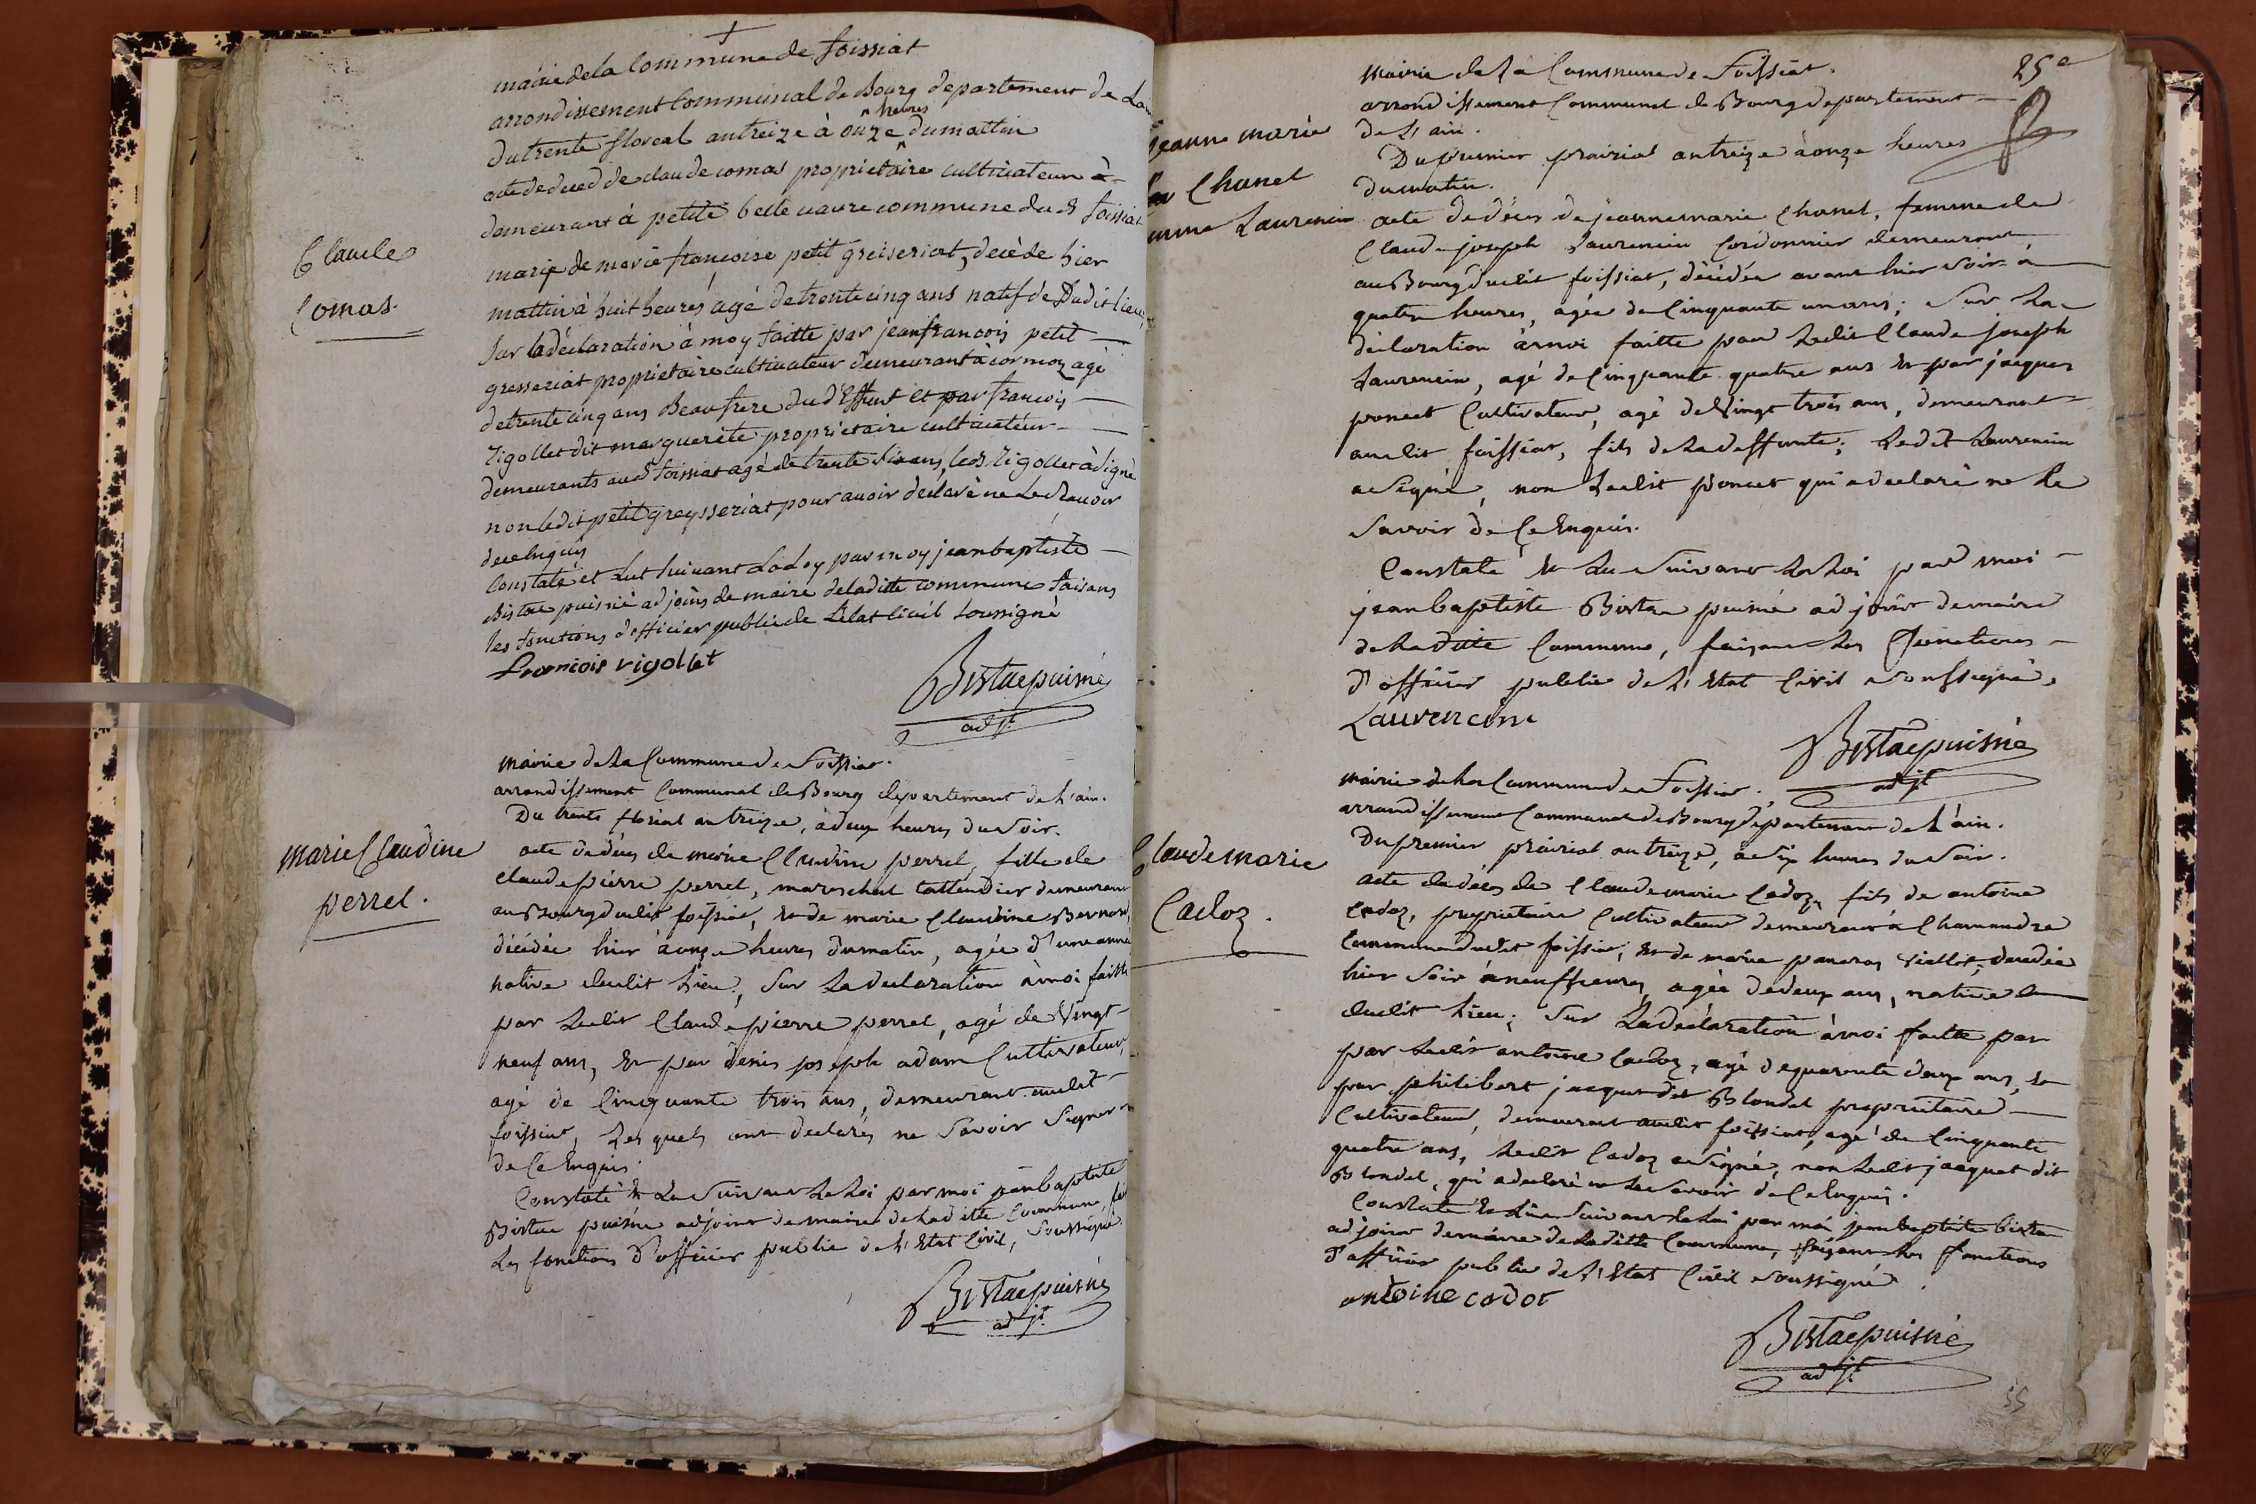 mairie de la Commune de foissiat
arrondissement Communal de Bourg departement de Lain
du trente floreal an treize à onze heures du mattin
acte de deced de claude comas proprietaire cultivateur à
demeurant à petite belle vavre commune du d foissiat
Claude
Comas.
marie de marie francoise petit greiseriat, decède hier
mattin à huit heures agé de trente cinq ans natif de Dudit lieu,
sur la déclaration à moy faitte par jean francois petit
gresseriat proprietaire cultivateur demeurant à cormoz agé
de trente cinq ans Beaufrere du d Effunt et par francois
rigollet dit marguerite proprietaire cultivateur
demeurants aud foissiat agé de trente six ans, led Rigollet à signé
non ledit petit greysseriat pour avoir declaré ne Le sçavoir
de ce enquis
Constaté et Lut suivant La Loy par moy jean baptiste
Bistac puisné adjoins de maire de ladite commune faisans
les fonctions d'officier public de L'Etat Civil soussigné
francois rigollet
Bistac puisné
adjt
mairie de La Commune de Foissiat.
arrondissement Communal de Bourg département de L'ain.
Du trente floréal an treize, à deux heures du soir.
marie Claudine
perret.
acte de décès de marie Claudine perret, fille de
claude pierre perret, mareschal taillandier demeurant
au Bourg dudit foissiat, et de marie Claudine Bernard,
décédée hier à onze heures du matin, agée d'une année
native dudit Lieu, sur La declaration à moi faitte
par Ledit Claude pierre perret, agé de Vingt
neuf ans, et par denis joseph adam Cultivateur,
agé de Cinquante trois ans, demeurant audit
foissiat, Lesquels ont declarés ne savoir signer
de Ce Enquis.
Constaté et Lu suivant La Loi par moi jean baptiste
Bistac puisné adjoint de maire de Ladite Commune,
Les fonctions D'officier public de L'Etat Civil, soussigné.
Bistac puisné
adjt
25e
mairie de La Commune de Foissiat.
arrondissement Communal de Bourg departement
de L'ain.
Du premier prairial an treize à onze heures
du matin.
jeanne marie
Chanel
femme Laurencin
acte de décès de jeanne marie Chanel, femme de
Claude joseph Laurencin Cordonnier demeurant
au Bourg dudit foissiat, décédée avant hier soir à
quatre heures, agée de Cinquante un ans; sur La
déclaration à moi faitte par Ledit Claude joseph
Laurencin, agé de Cinquante quatre ans et par jacques
poncet Cultivateur, agé de Vingt trois ans, demeurant
audit foissiat, fils de La deffunte; Ledit Laurencin
a signé, non Ledit poncet qui a declaré ne Le
savoir de Ce Enquis.
Constaté et Lu suivant La Loi par moi
jean baptiste Bistac puisné adjoint de maire
de La dite Commune, faisant Les Fonctions
D'officier public de L'Etat Civil soussigné.
Laurencin
Bistac puisné
adjt
mairie de La Commune de Foissiat.
arrondissement Communal de Bourg departement de L'ain.
Du premier prairial an treize, à six heures du soir.
Claude marie
Cadoz.
acte de décès de Claude marie Cadoz fils de antoine
Cadoz, proprietaire Cultivateur demeurant à Chamandre
Commune dudit foissiat, et de marie Viallet, décédée
hier soir à neuf heures, agée de deux ans, native
dudit Lieu; sur La déclaration à moi faitte par
par Ledit antoine Cadoz, agé de quarante deux ans, et
par philibert jacquet dit Blondel proprietaire
Cultivateur, demeurant audit foissiat, agé de Cinquante
quatre ans, Ledit Cadoz a signé, non Ledit jacquet dit
Blondel, qui a declaré ne Le savoir de Ce Enquis.
Constaté et Lu suivant La Loi par moi jean baptiste bistac
adjoint de maire de Laditte Commune, faisant Les fonctions
D'officier public de L'Etat Civil soussigné
antoine cadot
Bistac puisné
adjt
55